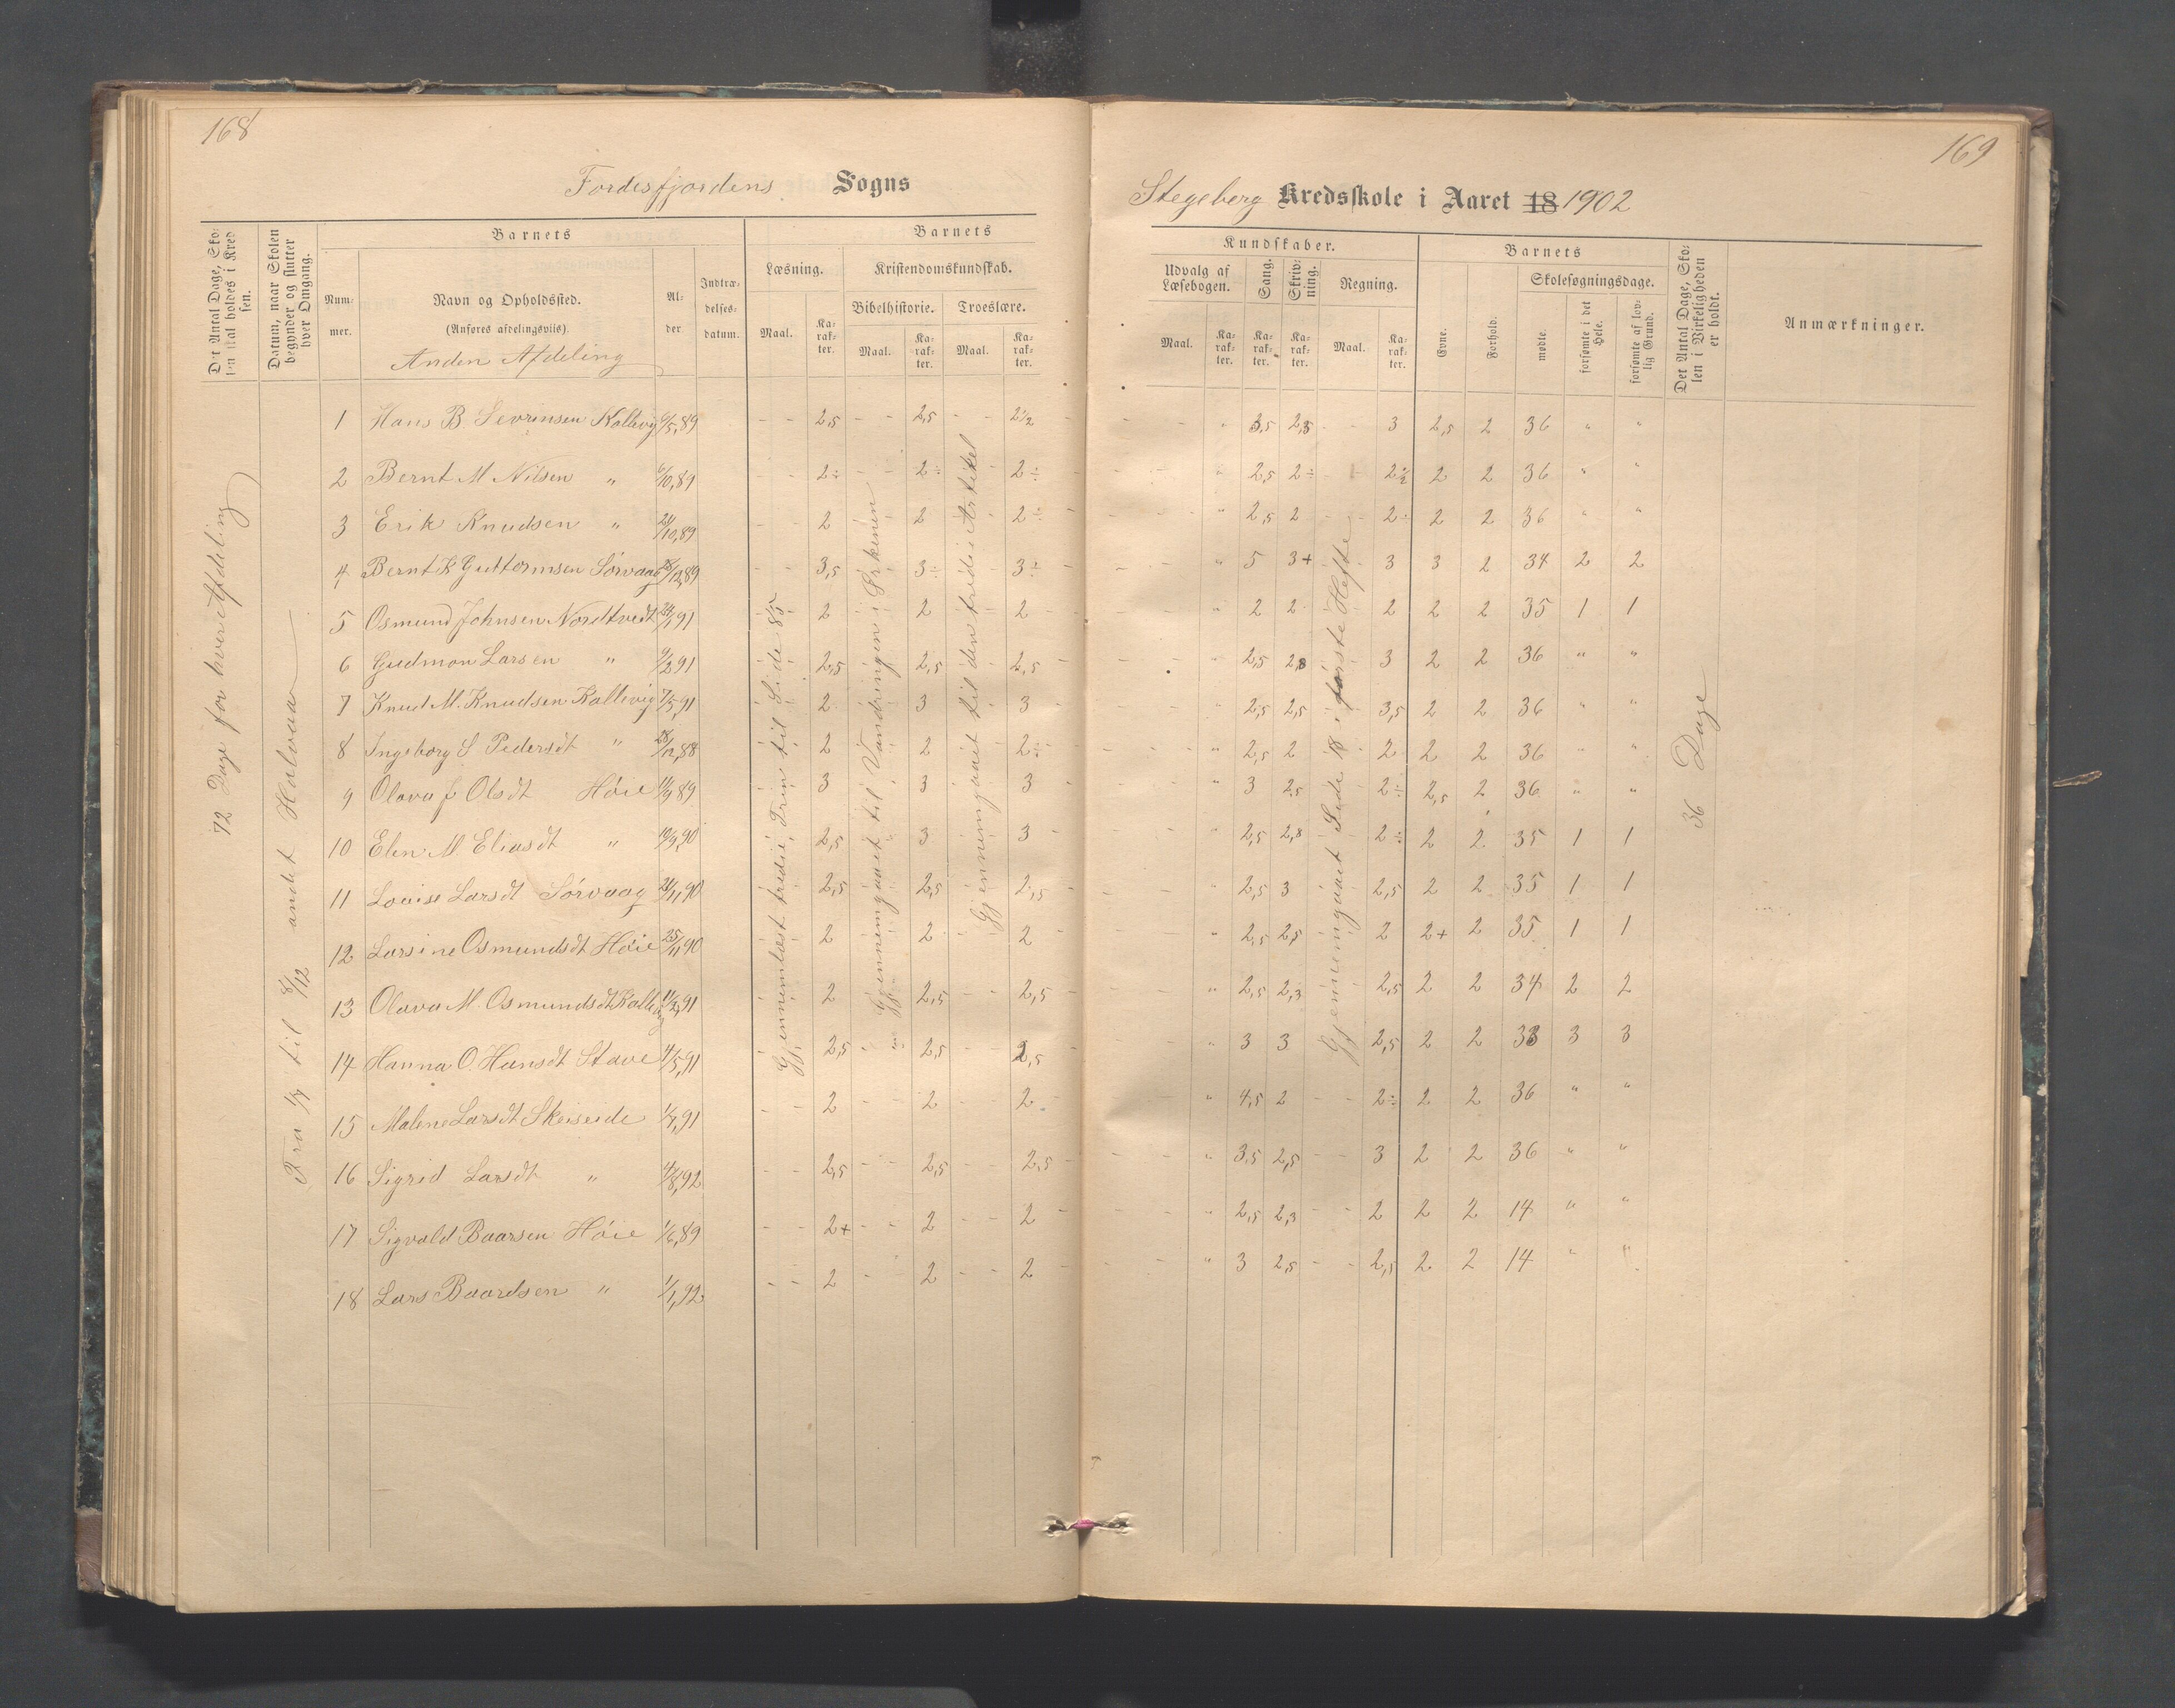 168
Fordesfjordens Sogns
Det Antal Dage, Skolen skal holdes i Kredsen.
Datum, naar Skolen begynder og slutter hver Omgang.
Barnets
Nummer.
Navn og Opholdssted.
(Anføres afdelingsviis)
Anden Afdeling
Alder
Indtrædelsesdatum.
Barnets
Læsning.
Kristendomskundskab.
Bibelhistorie.
Troeslære.
Maal.
Karakter.
Maal.
Karakter.
Maal.
Karakter.
72 Dage for hver Afdeling
Fra 1/7 til 8/12 andet Halvaar
Gjennemlæst tredie Trin til Side 85
Gjennemgaaet til Vandringen i Ørkenen
Gjennemgaaet til den tredie Artikel
1 Hans B. Sevrensen Kallevig 6/5,89 - - 2,5 - - 2,5 - - 2½
2 Bernt M Nilsen " 6/10,89 - - 2÷ - - 2÷ - 2÷
3 Erik Knudsen " 24/10,89 - - 2 2 2÷
4 Bernt K Guttormsen Sørvaag 28/12,89 - - 3,5 3÷ 3÷
5 Osmund Johnsen Nordtvedt 24/1,91 2 2 2
6 Gudmon Larsen " 9/2,91 2,5 2,5 2,5
7 Knud M. Knudsen Kallevig 7/5,91 2 3 3
8 Ingeborg S Pedersdt " 28/12,88 2 2 2÷
9 Olava J Olsdt Høie 11/9,89 3 3 3
10 Elen M. Eliasdt " 10/9,90 2,5 3 3
11 Louise Larsdt Sørvaag 21/11,90 2,5 2,5 2,5
12 Larsine Osmundsdt Høie 25/11,90 2 2 2
13 Olava M. Osmundsdt Kallevig 11/3,91 2 2,5 2,5
14 Hanna O. Hansdt Stave 4/5,91 2,5 2,5 2,5
15 Malene Larsdt Skeiseide 1/7,91 - - 2 - - 2 - - 2
16 Sigrid Larsdt " 4/8,92 - - 2,5 - - 2,5 - - 2,5
17 Sigvald Baarsen Høie 1/6,89 - - 2+ - - 2 - - 2
18 Lars Baardsen " 1/1,92 - - 2 - - 2 - - 2
169
Stegeberg Kredsskole i Aaret 18 1902
Kundskaber.
Udvalg af Læsebogen.
Sang.
Skrivning.
Regning.
Maal.
Karakter.
Karakter.
Karakter.
Maal.
Karakter.
Barnets
Evne.
Forhold.
Skolesøgningsdage.
mødte.
forsømte i det Hele.
forsømte af lovlig Grund.
Det Antal Dage, Skolen i Virkeligheden er holdt.
Anmærkninger.
Gjennemgaaet Side 18 i første Hefte
36 Dage
" 3,5 2,5 - - 3 2,5 2 36 " "
" 2,5 2÷ - 2½ 2 2 36 " "
" 2,5 2 2÷ 2 2 36 " "
" 5 3+ 3 3 2 34 2 2
" 2 2 2 2 2 35 1 1
" 2,5 2,8 3 2 2 36 " "
" 2,5 2,5 3,5 2 2 36 " "
" 2,5 2 2 2 2 36 " "
" 3 2,5 2÷ 2,5 2 36 " "
" 2,5 2,8 2÷ 2 2 35 1 1
" 2,5 3 2,5 2 2 35 1 1
" 2,5 2,5 2 2+ 2 35 1 1
" 2,5 2,3 2,5 2 2 34 2 2
" 3 3 2,5 2 2 33 3 3
" 4,5 2 - - 2÷ 2 2 36 " "
" 3,5 2,5 - - 3 2 2 36 " "
" 2,5 2,3 - - 2 2 2 14 " "
" 3 2,5 - - 2,5 2 2 14 " "